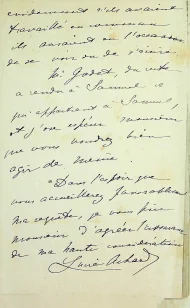 évidemment s'ils avaient
travaillé en commun
ils auraient eu l'occasion
de se voir ou de s'écrire
Mr Godet, du reste
a rendu à Samuel ce
qui appartient à Samuel,
et j'ose espérer monsieur
que vous voudrez bien
agir de même.
"Dans l'espoir que
vous accueillerez favorablement
ma requête, je vous prie
monsieur d'agréer l'assurance
de ma haute considération
Lucie Achard